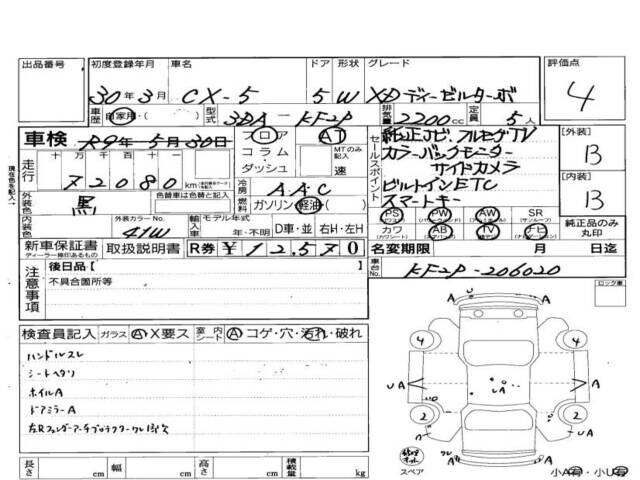 出品番号
初度登録年月 車名 ドア 形状 グレード 評価点
30年3月 CX-5 5 W XDディーゼルターボ
4
車歴 自家用・( ) 型式 3DA-KF2P 排気量 2200cc 定員 5人
車検 R9年5月30日
フロア AT
コラム MTのみ記入
ダッシュ 速
セールスポイント
純正ナビ フルセグTV
カラーバックモニター
サイドカメラ
ビルトインETC
スマートキー
[外装] B
[内装] B
純正品のみ丸印
走行 十万千百十一
72080 km
冷房 AAC
外装色 黒 色替車は色替と記入
ガソリン 軽油 ( )
PS PW AW SR
カワ AB TV ナビ
内装色 外装カラーNo. 41W
輸入車 モデル年式 年・不明 D車・並 右H・左H
新車保証書 取扱説明書 R券 ¥12570
ディーラー捺印あるもの
名変期限 月 日迄
車台No. KF2P-206020
現在色を記入
注意事項
後日品【
不具合箇所等
ロック車
検査員記入 ガラス A・X要ス 室内シート A コゲ・穴・汚れ・破れ
ハンドルスレ
シートヘタリ
ホイルA
ドアミラーA
4 4
UA A A
2 2
UA A
スペア
小A有・小U有
長さ cm 幅 cm 高さ cm 積載量 kg